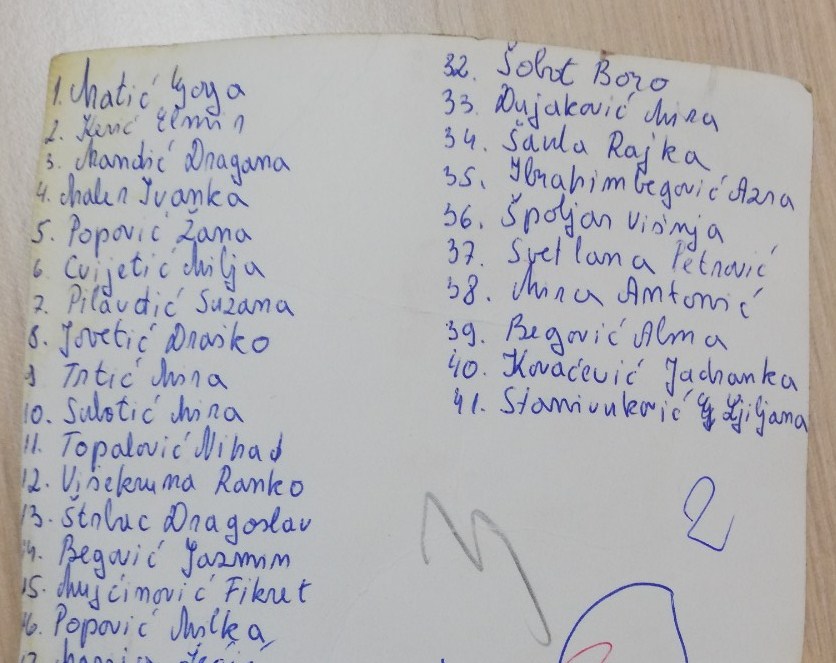 1. Matić Goga
2. Kenić Elmir
3. Mandić Dragana
4. Maler Ivanka
5. Popović Žana
6. Cvijetić Milja
7. Pilavdić Suzana
8. Jovetić Draško
9 Trtić Mira
10. Subotić Mira
11. Topalović Nihad
12. Višekruna Ranko
13. Štrbac Dragoslav
14. Begović Jazmin
15. Mujćinović Fikret
16. Popović Milka
17.
32. Šobot Boro
33. Dujaković Mira
34. Šaula Rajka
35. Ibrahimbegović Azra
36. Špoljar Višnja
37. Svetlana Petrović
38. Mira Antonić
39. Begović Alma
40. Kovačević Jadranka
41. Stanivuković Ljiljana
2